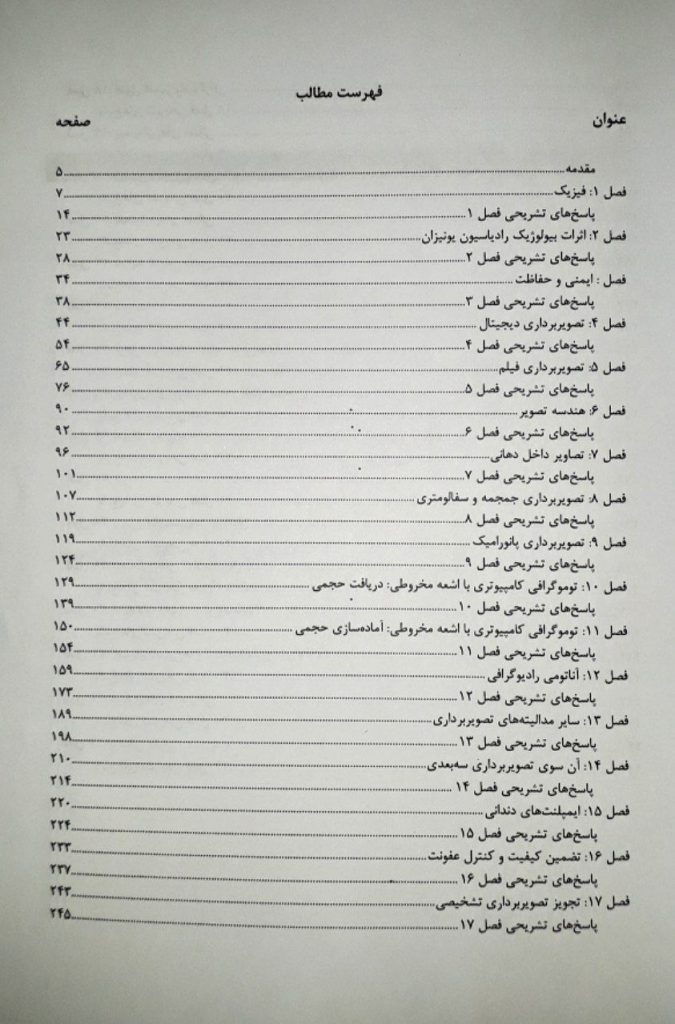 فهرست مطالب
عنوان صفحه
مقدمه ۵
فصل ۱: فیزیک ۷
پاسخ‌های تشریحی فصل ۱ ۱۴
فصل ۲: اثرات بیولوژیک رادیاسیون یونیزان ۲۳
پاسخ‌های تشریحی فصل ۲ ۲۸
فصل : ایمنی و حفاظت ۳۴
پاسخ‌های تشریحی فصل ۳ ۳۸
فصل ۴: تصویربرداری دیجیتال ۴۴
پاسخ‌های تشریحی فصل ۴ ۵۴
فصل ۵: تصویربرداری فیلم ۶۵
پاسخ‌های تشریحی فصل ۵ ۷۶
فصل ۶: هندسه تصویر ۹۰
پاسخ‌های تشریحی فصل ۶ ۹۲
فصل ۷: تصاویر داخل دهانی ۹۶
پاسخ‌های تشریحی فصل ۷ ۱۰۱
فصل ۸: تصویربرداری جمجمه و سفالومتری ۱۰۷
پاسخ‌های تشریحی فصل ۸ ۱۱۲
فصل ۹: تصویربرداری پانورامیک ۱۱۹
پاسخ‌های تشریحی فصل ۹ ۱۲۴
فصل ۱۰: توموگرافی کامپیوتری با اشعه مخروطی: دریافت حجمی ۱۲۹
پاسخ‌های تشریحی فصل ۱۰ ۱۳۹
فصل ۱۱: توموگرافی کامپیوتری با اشعه مخروطی: آماده‌سازی حجمی ۱۵۰
پاسخ‌های تشریحی فصل ۱۱ ۱۵۴
فصل ۱۲: آناتومی رادیوگرافی ۱۵۹
پاسخ‌های تشریحی فصل ۱۲ ۱۷۳
فصل ۱۳: سایر مدالیته‌های تصویربرداری ۱۸۹
پاسخ‌های تشریحی فصل ۱۳ ۱۹۸
فصل ۱۴: آن سوی تصویربرداری سه‌بعدی ۲۱۰
پاسخ‌های تشریحی فصل ۱۴ ۲۱۴
فصل ۱۵: ایمپلنت‌های دندانی ۲۲۰
پاسخ‌های تشریحی فصل ۱۵ ۲۲۴
فصل ۱۶: تضمین کیفیت و کنترل عفونت ۲۳۳
پاسخ‌های تشریحی فصل ۱۶ ۲۳۷
فصل ۱۷: تجویز تصویربرداری تشخیصی ۲۴۳
پاسخ‌های تشریحی فصل ۱۷ ۲۴۵